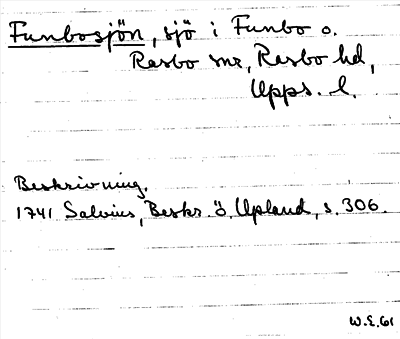 Funbosjön, sjö i Funbo o.
Rasbo snr, Rasbo hd,
Upps. l.
Beskrivning.
1741 Salvius, Beskr. ö. Upland, s. 306.
W.E.61